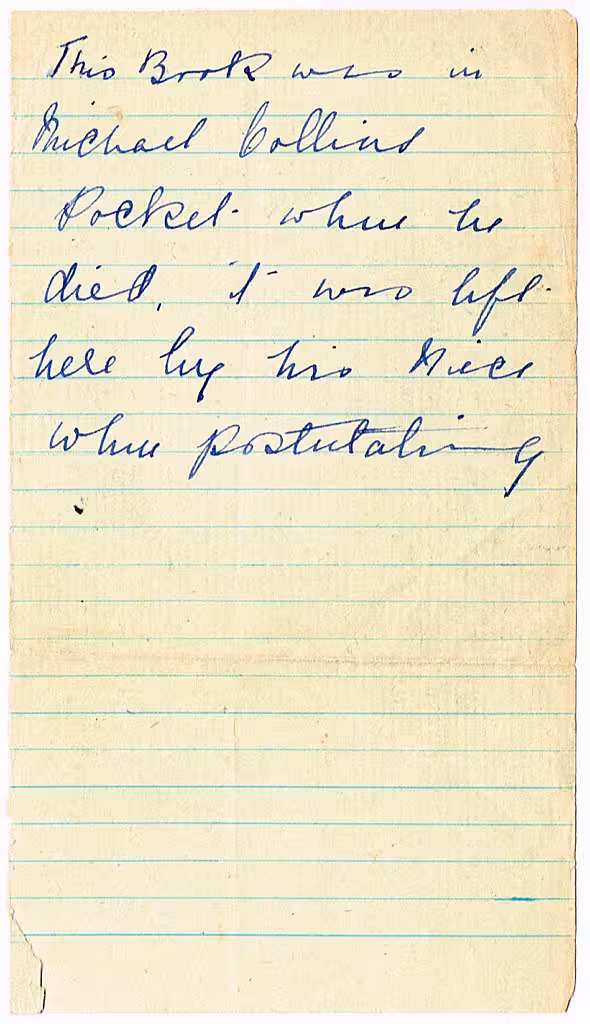 This Book was in
Michael Collins
Pocket when he
died, it was left
here by his Niece
when postulating